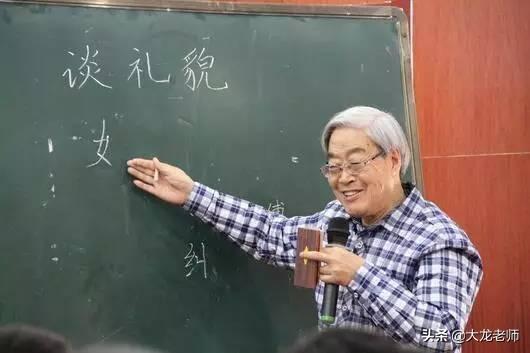 谈礼貌
女
纠
头条 @大龙老师